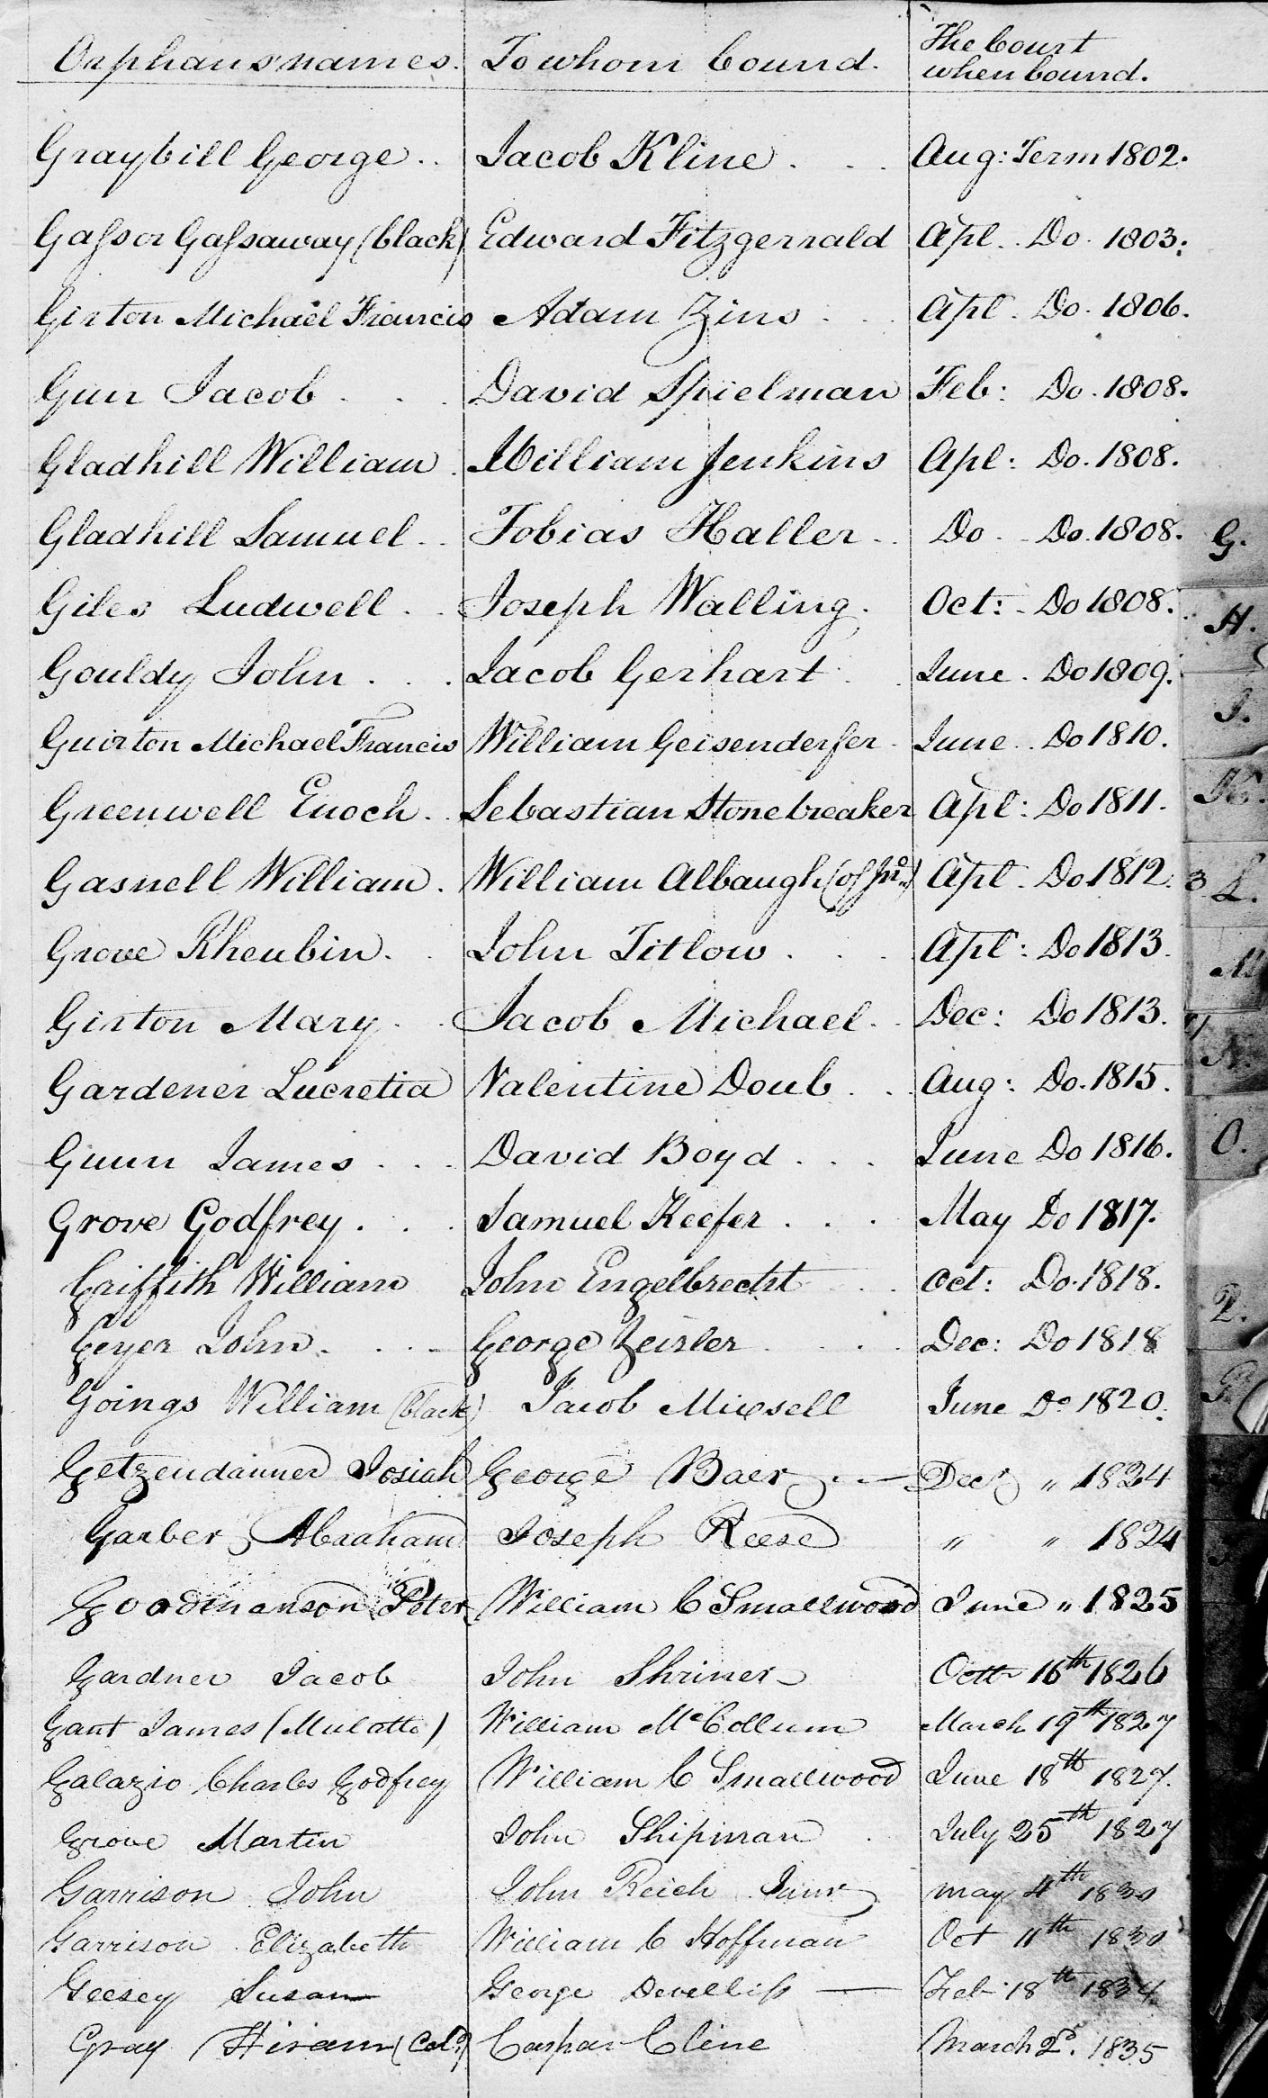 Orphans names. To whom bound. The Court when bound.
Graybill George . . Jacob Kline . . . Aug: Term 1802.
Gaſsor Gaſsaway (black) Edward Fitzgerrald Apl. . Do. 1803.
Girton Michael Francis Adam Zins . . . Apl. Do. 1806.
Gun Jacob . . . David Spielman Feb: Do. 1808.
Gladhill William . William Jenkins Apl: Do. 1808.
Gladhill Samuel . . Tobias Haller . . Do. . Do. 1808.
Giles Ludwell . . Joseph Walling . Oct: . Do 1808.
Gouldy John . . . Jacob Gerhart . . June . Do 1809.
Guirton Michael Francis William Geisenderfer . June . . Do 1810.
Greenwell Enoch . . Sebastian Stonebreaker Apl: Do 1811.
Gasnell William . William Albaugh (of Jno.) Apl. Do. 1812.
Grove Rheubin . . John Titlow . . . Apl: Do 1813.
Girton Mary . . Jacob Michael . . Dec: Do 1813.
Gardener Lucretia Valentine Doub . . Aug: Do. 1815.
Gunn James . . . David Boyd . . . June Do 1816.
Grove Godfrey . . . Samuel Keefer . . . May Do 1817.
Griffith William John Engelbrecht . . Oct: Do. 1818.
Geyer John . . . . George Zeisler . . . . Dec: Do 1818
Goings William (black) Jacob Mixsell June Do 1820.
Getzendanner Josiah George Baer . — Decr " 1824
Garber Abraham Joseph Reese " " 1824
Goodmanson Peter William C Smallwood June " 1825
Gardner Jacob John Shriner Octr 16th 1826
Gant James (Mulatto) William McCollum March 19th 1827
Galazio Charles Godfrey William C Smallwood June 18th 1827.
Grove Martin John Shipman . July 25th 1827
Garrison John John Reich Junr May 4th 1830
Garrison Elizabeth William C Hoffman Oct 11th 1830
Geesey Susan George Devellbiſs — Feb 18th 1834
Gray Hiram (Cold) Caspar Cline March 2d. 1835
G.
H.
I.
K.
3 L.
M
N.
O.
P.